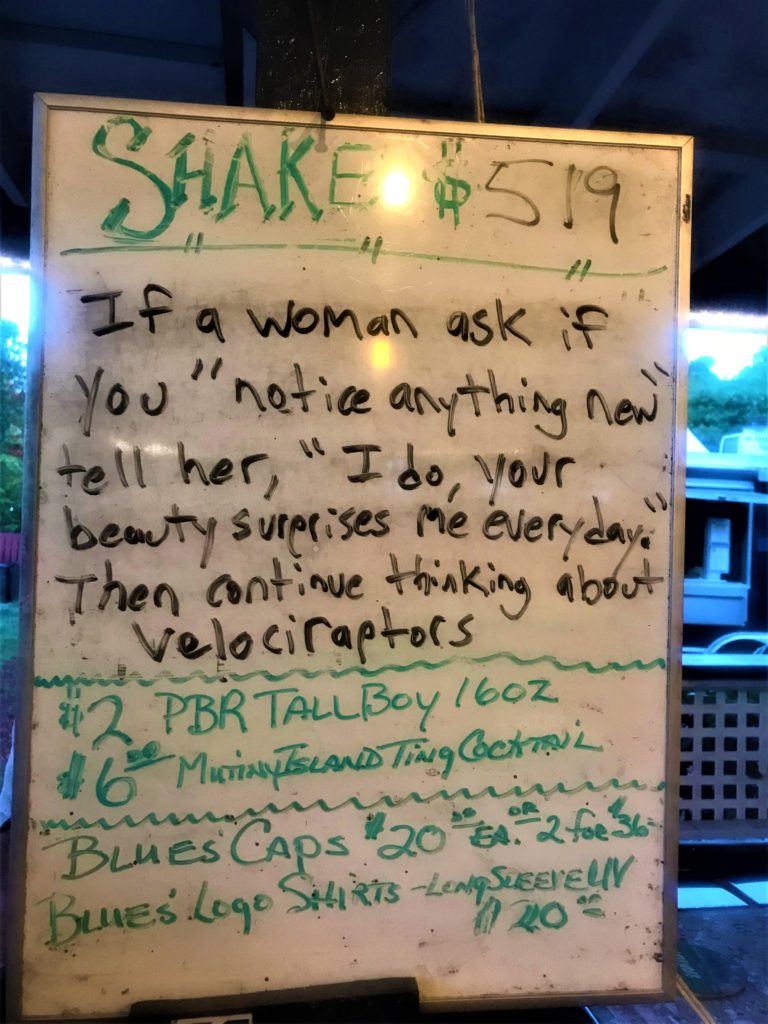 SHAKE $519
If a woman ask if
you "notice anything new"
tell her, "I do, your
beauty surprises me everyday."
Then continue thinking about
velociraptors
$2 PBR TALL BOY 16OZ
$6.00 MUTINY ISLAND TING COCKTAIL
BLUES' CAPS $20.00 EA. OR 2 FOR $36
BLUES' LOGO SHIRTS - LONG SLEEVE UV